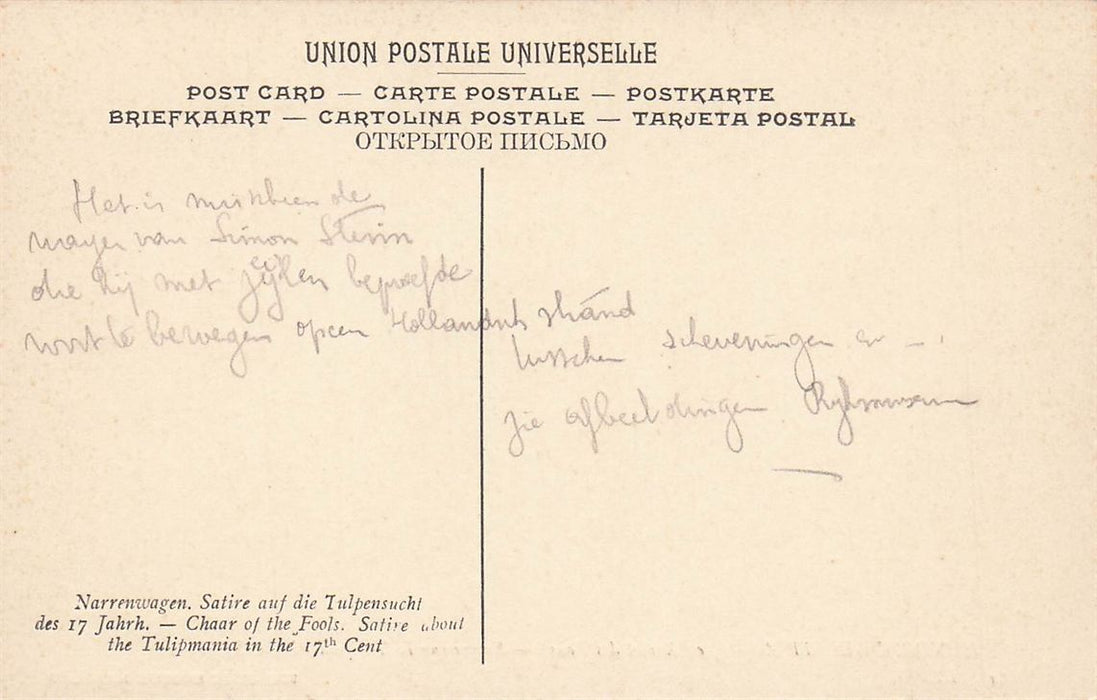 UNION POSTALE UNIVERSELLE
POST CARD — CARTE POSTALE — POSTKARTE
BRIEFKAART — CARTOLINA POSTALE — TARJETA POSTAL
ОТКРЫТОЕ ПИСЬМО
Het is misschien de
wagen van Simon Stevin
die hij met zeilen beproefde
voort te bewegen op een Hollandsch strand
tusschen Scheveningen en
zie afbeeldingen Ryksmuseum
Narrenwagen. Satire auf die Tulpensucht
des 17 Jahrh. — Chaar of the Fools. Satire about
the Tulipmania in the 17th Cent